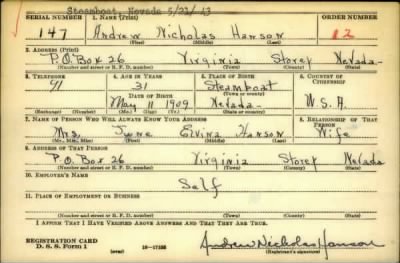 Steamboat, Nevada 5/22/43
SERIAL NUMBER 1. NAME (Print) ORDER NUMBER
147 Andrew Nicholas Hanson 12
(First) (Middle) (Last)
2. ADDRESS (Print)
P.O. Box 26 Virginia Storey Nevada
(Number and street or R. F. D. number) (Town) (County) (State)
3. TELEPHONE 4. AGE IN YEARS 5. PLACE OF BIRTH 6. COUNTRY OF CITIZENSHIP
91 31 Steamboat
DATE OF BIRTH (Town or county)
May 11 1909 Nevada U.S.A.
(Exchange) (Number) (Mo.) (Day) (Yr.) (State or country)
7. NAME OF PERSON WHO WILL ALWAYS KNOW YOUR ADDRESS 8. RELATIONSHIP OF THAT PERSON
Mrs. June Elvina Hanson Wife
(Mr., Mrs., Miss) (First) (Middle) (Last)
9. ADDRESS OF THAT PERSON
P.O. Box 26 Virginia Storey Nevada
(Number and street or R. F. D. number) (Town) (County) (State)
10. EMPLOYER'S NAME
Self
11. PLACE OF EMPLOYMENT OR BUSINESS
(Number and street or R. F. D. number) (Town) (County) (State)
I AFFIRM THAT I HAVE VERIFIED ABOVE ANSWERS AND THAT THEY ARE TRUE.
REGISTRATION CARD
D. S. S. Form 1 (over) 16-17105 Andrew Nicholas Hanson
(Registrant's signature)